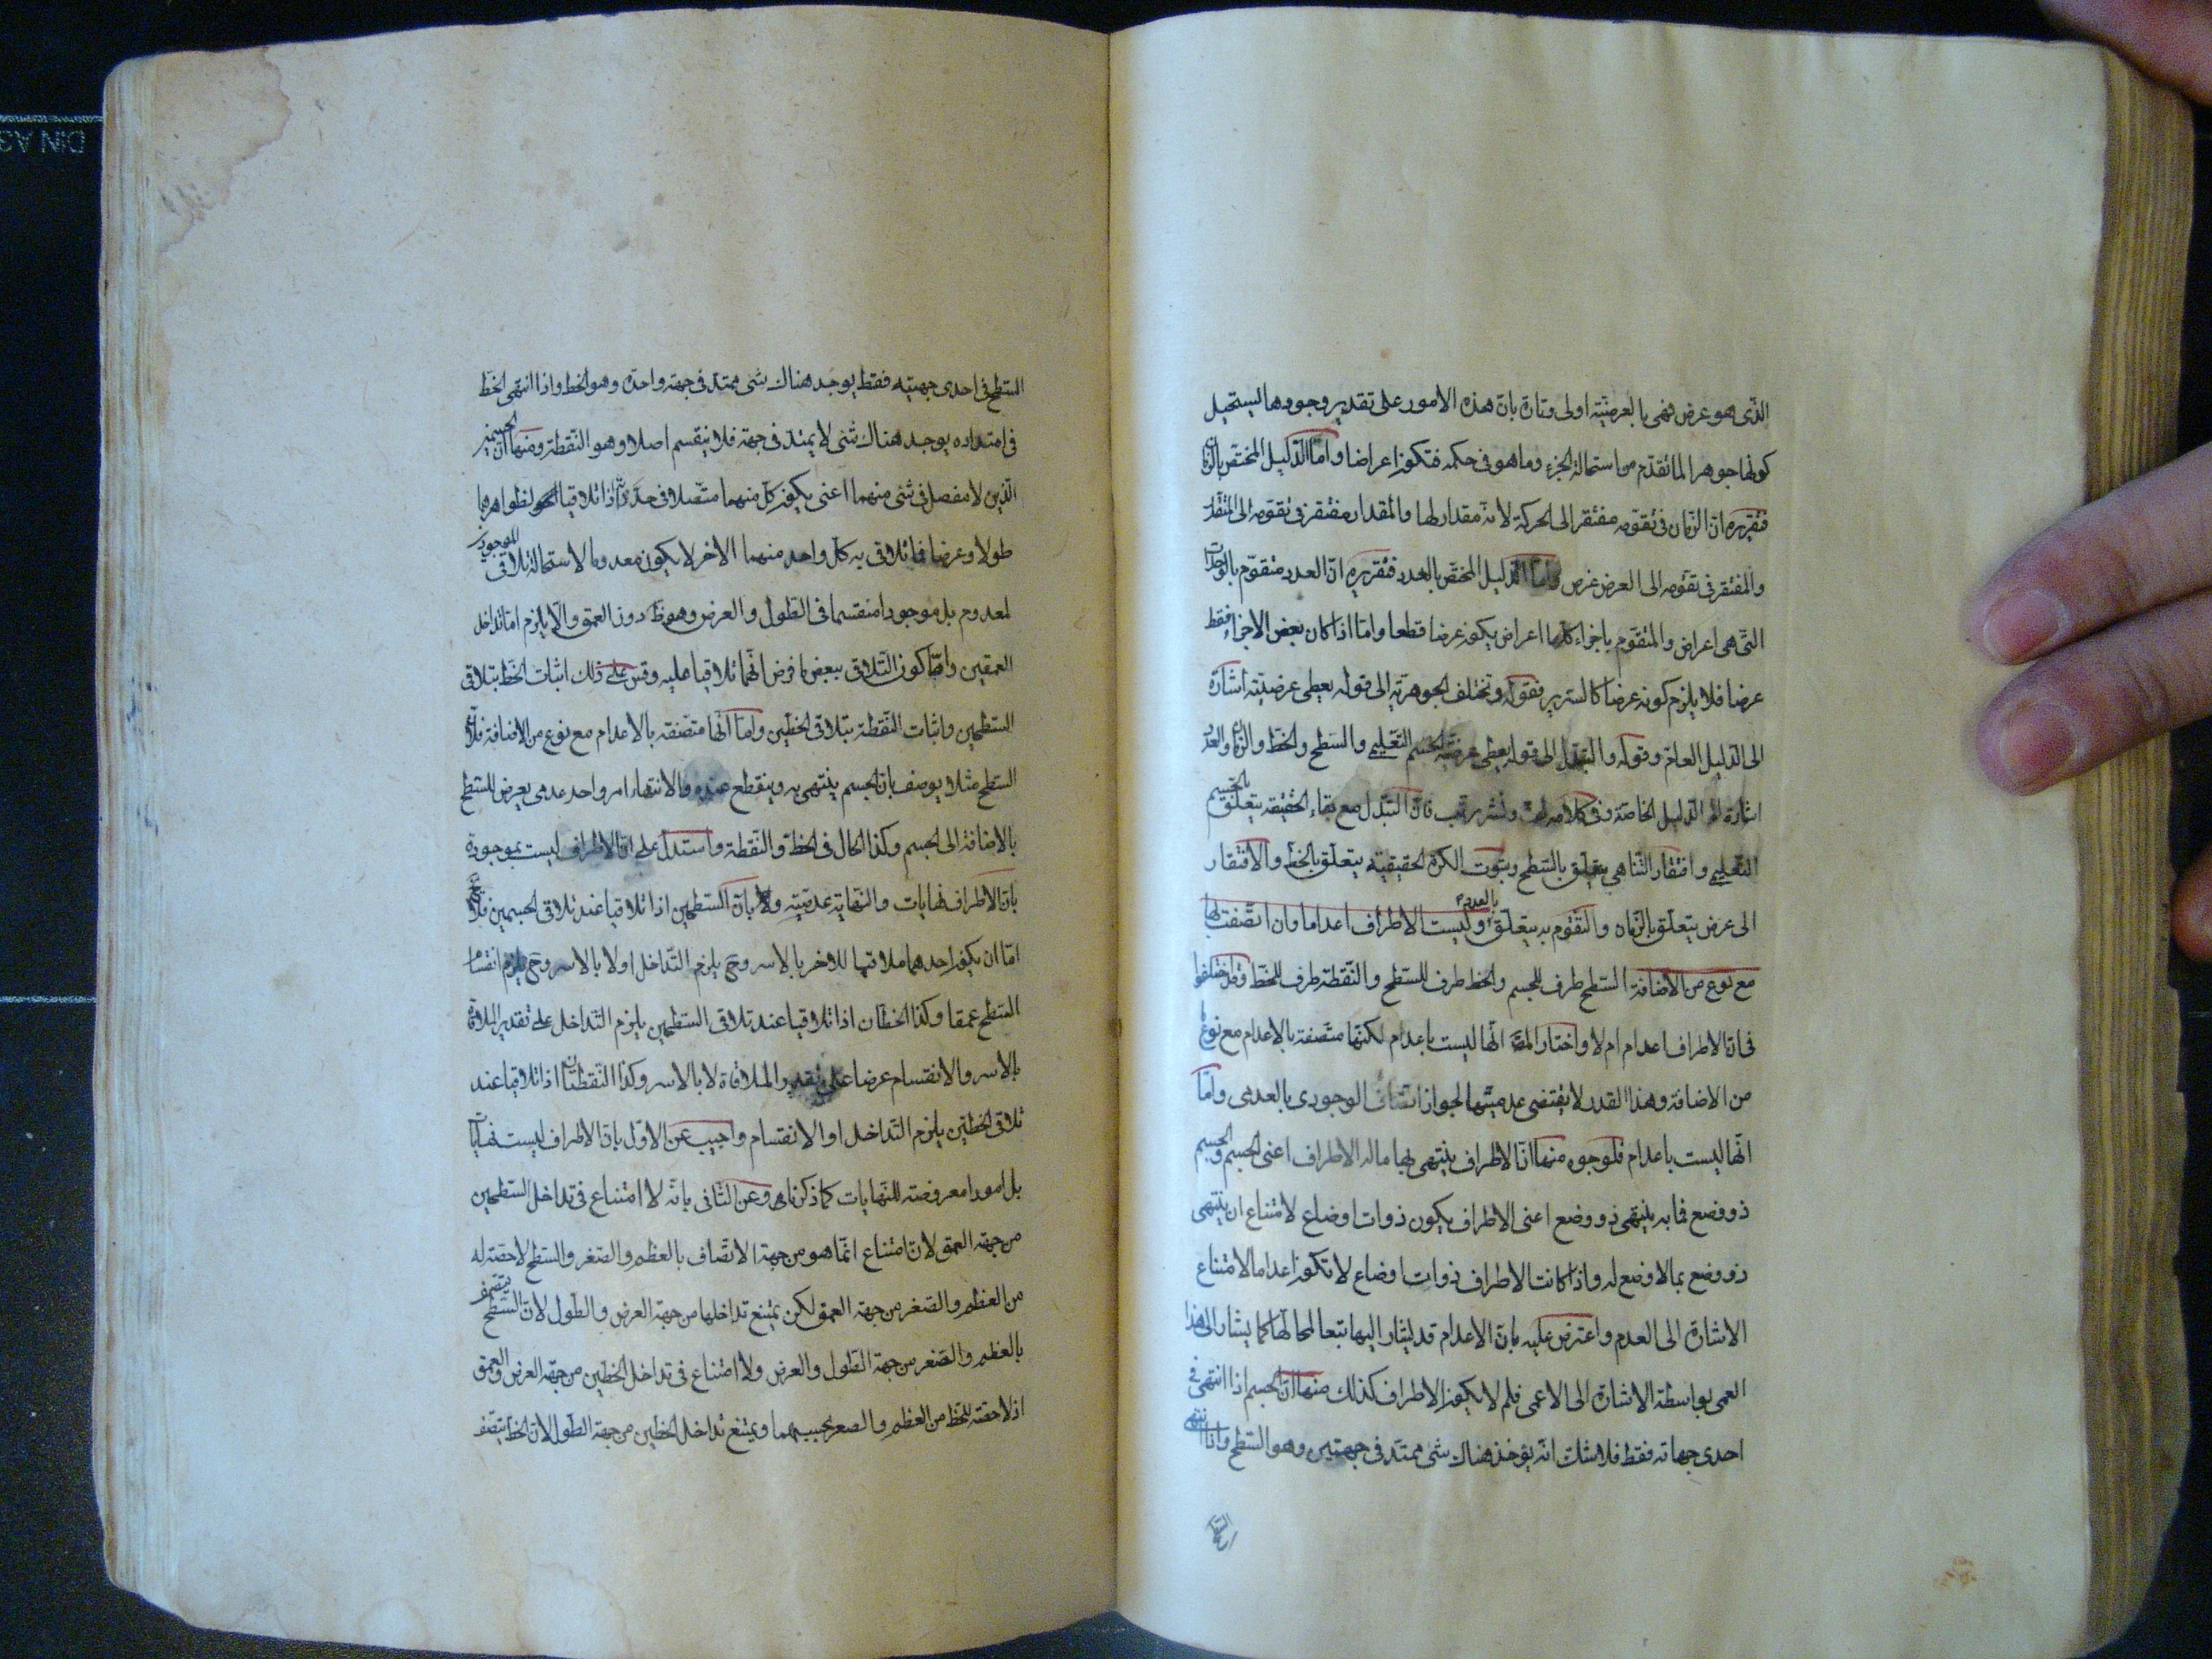 الذى هو عرض فهى بالعرضية اولى وتارة بان هذه الامور على تقدير وجودها يستحيل
كونها جوهرا لما تقدم من استحالة الجزء وما هو فى حكمه فتكون اعراضا واما الدليل المختص بالزمان
فتقريره ان الزمان فى تقومه مفتقر الى الحركة لانه مقدار لها والمقدار مفتقر فى تقومه الى المتقدر
والمفتقر فى تقومه الى العرض عرض واما الدليل المختص بالعدد فتقريره ان العدد متقوم بالوحدات
التى هى اعراض والمتقوم باجزاء كلها اعراض يكون عرضا قطعا واما اذا كان بعض الاجزاء فقط
عرضا فلا يلزم كونه عرضا كالسرير فقوله وتختلف الجوهرية الى قوله يعطى عرضيته اشارة
الى الدليل العام وقوله والتبدل الى قوله يعطى عرضية الجسم التعليمى والسطح والخط والزمان والعدد
اشارة الى الدليل الخاصة وفى كلامه لف ونشر مرتب فان التبدل مع بقاء الحقيقة يتعلق بالجسم
التعليمى وافتقار التناهى يتعلق بالسطح وثبوت الكرة الحقيقية يتعلق بالخط والافتقار
الى عرض يتعلق بالزمان والتقوم به يتعلق بالعدد وليست الاطراف اعداما وان اتصفت بها
مع نوع من الاضافة السطح طرف للجسم والخط طرف للسطح والنقطة طرف للخط وقد اختلفوا
فى ان الاطراف اعدام ام لا واختار المص انها ليست باعدام لكنها متصفة بالاعدام مع نوع ما
من الاضافة وهذا القدر لا يقتضى عدميتها لجواز اتصاف الوجودى بالعدمى واما
انها ليست باعدام فلوجوه منها ان الاطراف ينتهى بها ماله الاطراف اعنى الجسم والجسم
ذو وضع فما به ينتهى ذو وضع اعنى الاطراف يكون ذوات اوضاع لامتناع ان ينتهى
ذو وضع بما لا وضع له واذا كانت الاطراف ذوات اوضاع لا تكون اعداما لامتناع
الاشارة الى العدم واعترض عليه بان الاعدام قد يشار اليها تبعا لمحالها كما يشار الى هذا
العمى بواسطة الاشارة الى الاعمى فلم لا يكون الاطراف كذلك منها ان الجسم اذا انتهى فى
احدى جهاته فقط فلا شك انه يؤخذ هناك شئ ممتد فى جهتين وهو السطح واذا انتهى
السطح
السطح فى احدى جهتيه فقط يوجد هناك شئ ممتد فى جهة واحدة وهو الخط واذا انتهى الخط
فى امتداده يوجد هناك شئ لا يمتد فى جهة فلا ينقسم اصلا وهو النقطة ومنها ان الجسمين
الذين لا مفصل فى شئ منهما اعنى يكون كل منهما متصلا فى حد ذاته اذا تلاقيا بظواهرهما
طولا وعرضا فما تلاقى به كل واحد منهما الاخر لا يكون معدوما لاستحالة تلاقى الموجودين
لمعدوم بل موجودا منقسما فى الطول والعرض وهو ظ دون العمق والا يلزم اما تداخل
العمقين واما كون التلاقى ببعض ما فرض انهما تلاقيا عليه وقس على ذلك اثبات الخط بتلاقى
السطحين واثبات النقطة بتلاقى الخطين واما انها متصفة بالاعدام مع نوع من الاضافة فلان
السطح مثلا يوصف بان الجسم ينتهى به وينقطع عنده والانتهاء امر واحد عدمى يعرض للسطح
بالاضافة الى الجسم وكذا الحال فى الخط والنقطة واستدل على ان الاطراف ليست بموجودة
بان الاطراف نهايات والنهاية عدمية ولا بان السطحين اذا تلاقيا عند تلاقى الجسمين فلا يخ
اما ان يكون احدهما ملاقيا للاخر بالاسر وح يلزم التداخل او لا بالاسر وح يلزم انقسام
السطح عمقا وكذا الخطان اذا تلاقيا عند تلاقى السطحين يلزم التداخل على تقدير الملاقاة
بالاسر والانقسام عرضا على تقدير الملاقاة لا بالاسر وكذا النقطتان اذا تلاقيا عند
تلاقى الخطين يلزم التداخل او الانقسام واجيب عن الاول بان الاطراف ليست نهايات
بل امورا معروضة للنهايات كما ذكرناه وعن الثانى بانه لا امتناع فى تداخل السطحين
من جهة العمق لان امتناع انما هو من جهة الاتصاف بالعظم والصغر والسطح لا حصة له
من العظم والصغر من جهة العمق لكن يمتنع تداخلها من جهة العرض والطول لان السطح يتصف
بالعظم والصغر من جهة الطول والعرض ولا امتناع فى تداخل الخطين من جهة العرض والعمق
اذ لا حصة للخط من العظم والصغر بحسبهما ويمتنع تداخل الخطين من جهة الطول لان الخط يتصف
DIN A3